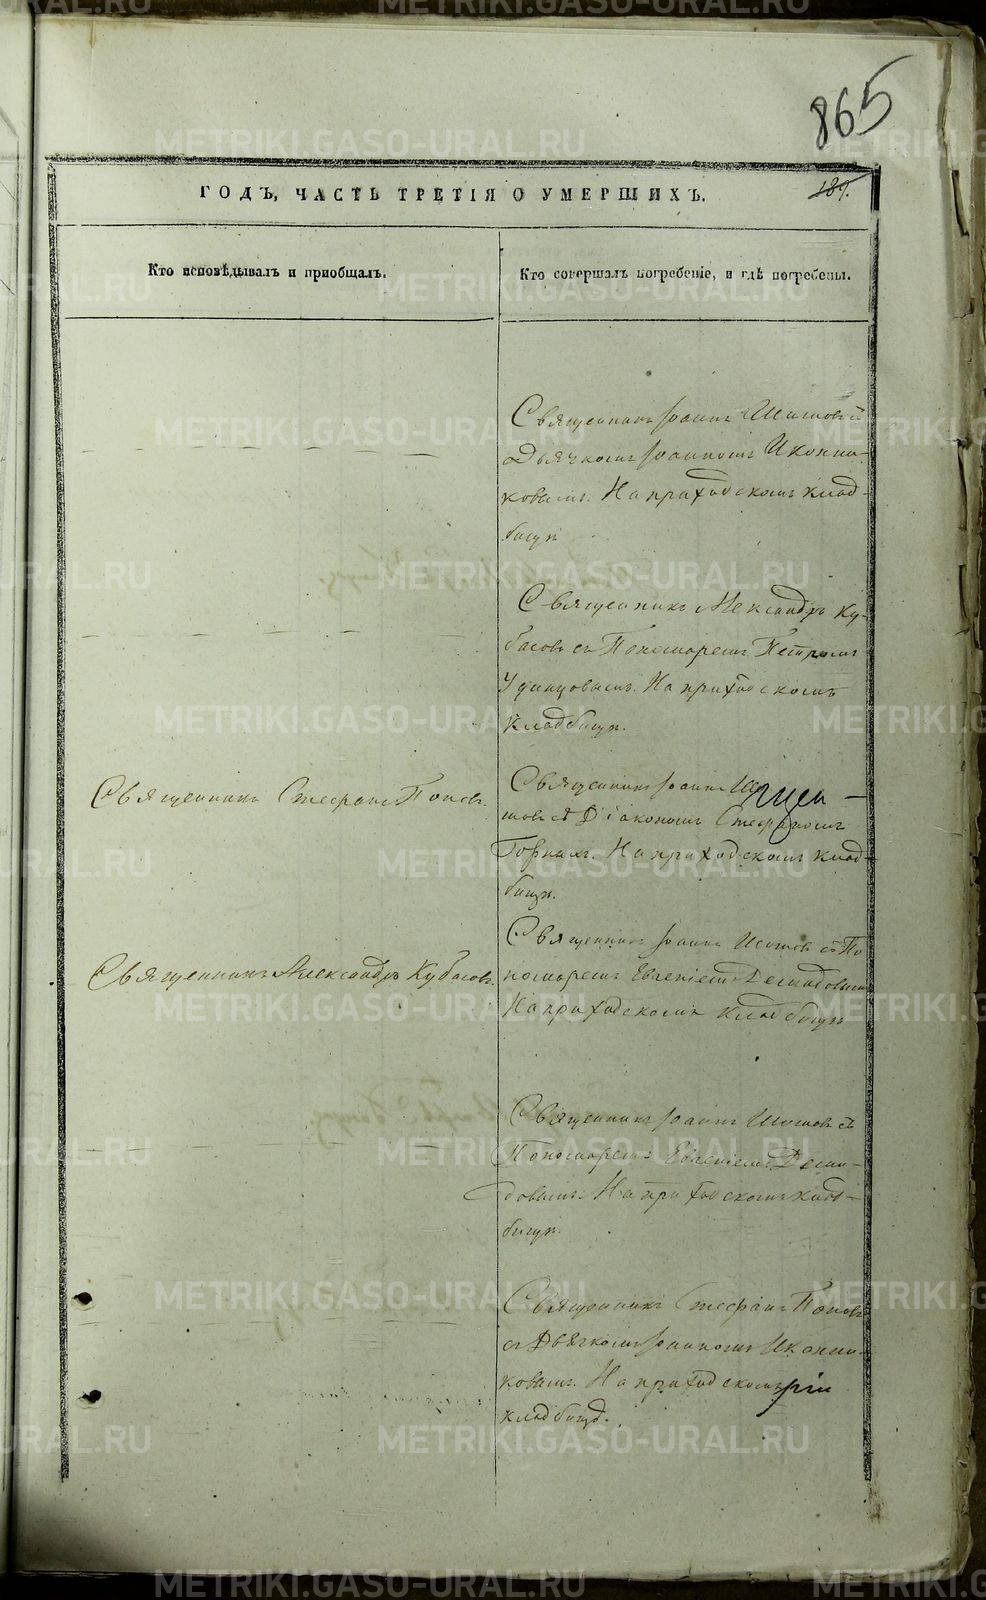 865
ГОДЪ, ЧАСТЬ ТРЕТІЯ О УМЕРШИХЪ.
189.
Кто исповѣдывалъ и пріобщалъ.
Кто совершалъ погребеніе, и гдѣ погребены.
Священникъ Іоаннъ Шишовъ съ
Дьячкомъ Іоанномъ Иконни-
ковымъ. На приходскомъ клад-
бищѣ
Священникъ Александръ Ку-
басовъ съ Пономаремъ Петромъ
Удинцовымъ. На приходскомъ
кладбищѣ.
Священникъ Стефанъ Поповъ.
Священникъ Іоаннъ
съ Діакономъ Стефаномъ
Горныхъ. На приходскомъ клад-
бищѣ.
Священникъ Александръ Кубасовъ.
Священникъ Іоаннъ Шишовъ съ По
номаремъ Евгеніемъ Демидовымъ
На приходскомъ кладбищѣ
Священникъ Іоаннъ Шишовъ съ
Пономаремъ Евгеніемъ Деми-
довымъ. На приходскомъ клад-
бищѣ.
Священникъ Стефанъ Поповъ
съ Дьячкомъ Іоанномъ Иконни-
ковымъ. На приходскомъ
кладбищѣ.
METRIKI.GASO-URAL.RU